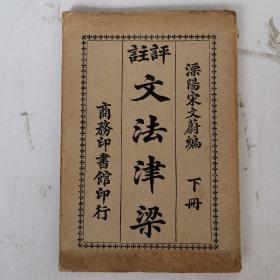 溧陽宋文蔚編
下冊
評註
文法津梁
商務印書館印行